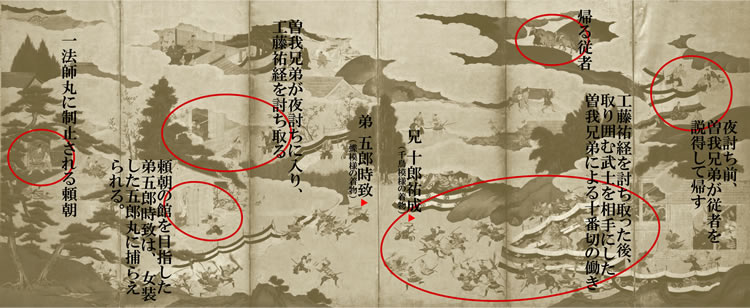 夜討ち前、
曽我兄弟が従者を
説得して帰す
帰る従者
工藤祐経を討ち取った後、
取り囲む武士を相手にした
曽我兄弟による十番切の働き
兄 十郎祐成
(千鳥模様の着物)
弟 五郎時致
(蝶模様の着物)
曽我兄弟が夜討ちに入り、
工藤祐経を討ち取る
頼朝の館を目指した
弟五郎時致は、女装
した五郎丸に捕らえ
られる。
一法師丸に制止される頼朝